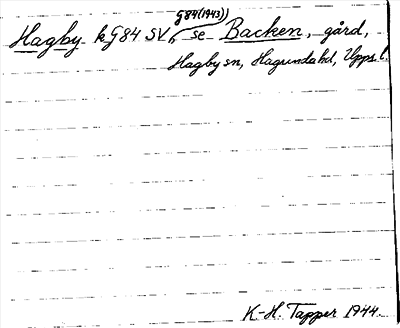 G84(1943))
Hagby kG84 SV, se Backen, gård,
Hagby sn, Hagunda hd, Upps. l.
K-H. Tapper 1944.